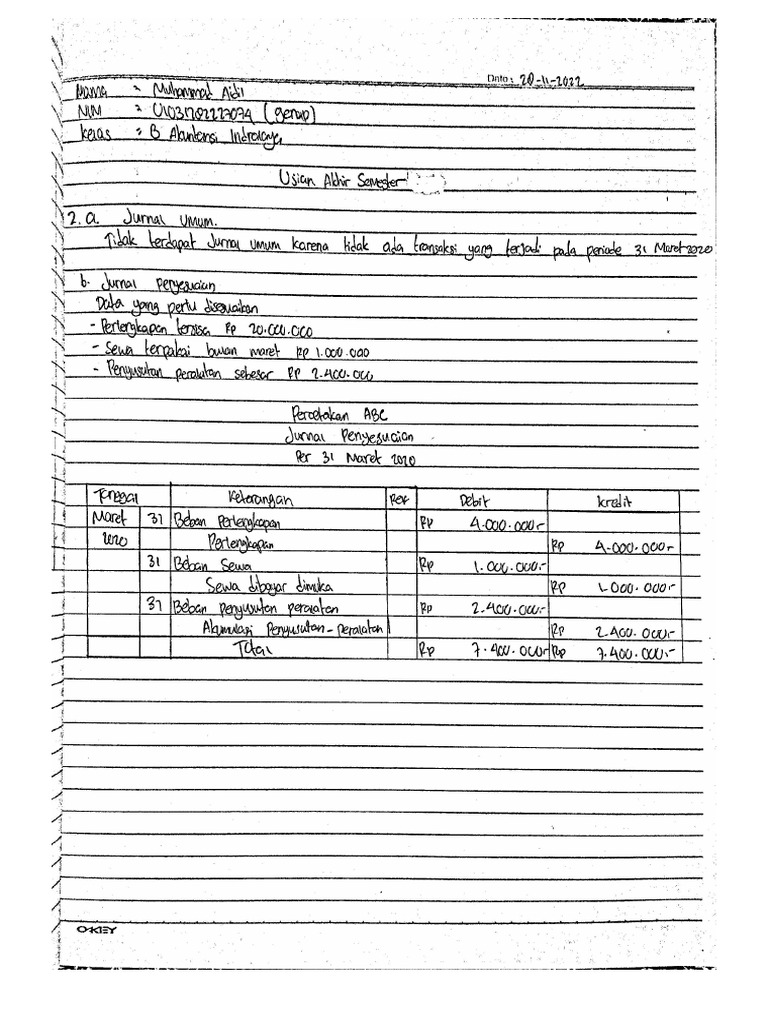 Date : 28-11-2022
Nama : Muhammad Aidil
NIM : 01031282227074 (genap)
Kelas : B Akuntansi Indralaya
Ujian Akhir Semester
2. a. Jurnal Umum.
Tidak terdapat Jurnal umum karena tidak ada transaksi yang terjadi pada periode 31 Maret 2020
b. Jurnal Penyesuaian
Data yang perlu disesuaikan
- Perlengkapan tersisa Rp 20.000.000
- Sewa terpakai bulan maret Rp 1.000.000
- Penyusutan peralatan sebesar Rp 2.400.000
Percetakan ABC
Jurnal Penyesuaian
Per 31 Maret 2020
Tanggal Keterangan Ref Debit Kredit
Maret 31 Beban Perlengkapan Rp 4.000.000,-
2020 Perlengkapan Rp 4.000.000,-
31 Beban Sewa Rp 1.000.000,-
Sewa dibayar dimuka Rp 1.000.000,-
31 Beban Penyusutan peralatan Rp 2.400.000,-
Akumulasi Penyusutan - peralatan Rp 2.400.000,-
Total Rp 7.400.000,- Rp 7.400.000,-
O-KEY